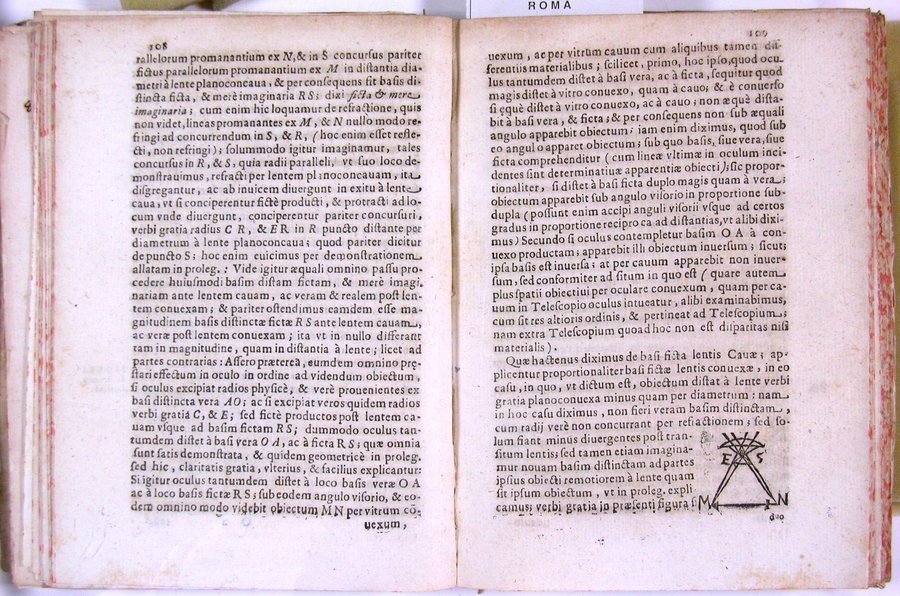 ROMA
108
rallelorum promanantium ex N, & in S concursus pariter
fictus parallelorum promanantium ex M in distantia dia-
metri à lente planoconcaua, & per consequens sit basis di-
stincta ficta, & merè imaginaria RS; dixi ficta & mere
imaginaria; cum enim hic loquamur de refractione, quis
non videt, lineas promanantes ex M, & N nullo modo re-
fringi ad concurrendum in S, & R, (hoc enim esset refle-
cti, non refringi); solummodo igitur imaginamur, tales
concursus in R, & S, quia radii paralleli, vt suo loco de-
monstrauimus, refracti per lentem planoconcauam, ita
disgregantur, ac ab inuicem diuergunt in exitu à lente
caua; vt si conciperentur fictè producti, & protracti ad lo-
cum vnde diuergunt, conciperentur pariter concursuri,
verbi gratia radius C R, & ER in R puncto distante per
diametrum à lente planoconcaua; quod pariter dicitur
de puncto S; hoc enim euicimus per demonstrationem
allatam in proleg.: Vide igitur æquali omnino passu pro-
cedere huiusmodi basim distam fictam, & merè imagi-
nariam ante lentem cauam, ac veram & realem post len-
tem conuexam; & pariter ostendimus eamdem esse ma-
gnitudinem basis distinctæ fictæ RS ante lentem cauam,
ac veræ post lentem conuexam; ita vt in nullo differant
tam in magnitudine, quam in distantia à lente; licet ad
partes contrarias: Assero præterea, eumdem omnino prę-
stari effectum in oculo in ordine ad videndum obiectum,
si oculus excipiat radios physicè, & verè prouenientes ex
basi distincta vera AO; ac si excipiat veros quidem radios
verbi gratia C, & E; sed fictè productos post lentem ca-
uam vsque ad basim fictam RS; dummodo oculus tan-
tumdem distet à basi vera O A, ac à ficta RS; quæ omnia
sunt satis demonstrata, & quidem geometricè in proleg.
sed hic, claritatis gratia, vlterius, & facilius explicantur:
Si igitur oculus tantumdem distet à loco basis veræ O A
ac à loco basis fictæ RS; sub eodem angulo visorio, & eo-
dem omnino modo videbit obiectum MN per vitrum cõ-
uexum,
109
uexum, ac per vitrum cauum cum aliquibus tamen dif-
ferentis materialibus; scilicet, primo, hoc ipso, quod ocu
lus tantumdem distet à basi vera, ac à ficta, sequitur quod
magis distet à vitro conuexo, quam à cauo; & è conuerso
si equè distet à vitro conuexo, ac à cauo; non æquè dista-
bit à basi vera, & ficta; & per consequens non sub æquali
angulo apparebit obiectum; iam enim diximus, quod sub
eo angulo apparet obiectum; sub quo basis, siue vera, siue
ficta comprehenditur (cum lineæ vltimæ in oculum inci-
dentes sint determinatiuæ apparentiæ obiecti); sic propor-
tionaliter, si distet à basi ficta duplo magis quam à vera;
obiectum apparebit sub angulo visorio in proportione sub-
dupla (possunt enim accipi anguli visorii vsque ad certos
gradus in proportione reciproca ad distantias, vt alibi dixi-
mus) Secundo si oculus contempletur basim O A à con-
uexo productam; apparebit illi obiectum inuersum; sicut
ipsa basis est inuersa; at per cauum apparebit non inuer-
sum, sed conformiter ad situm in quo est (quare autem
plus spatii obiectiui per oculare conuexum, quam per ca-
uum in Telescopio oculus intueatur, alibi examinabimus,
cum sit res altioris ordinis, & pertineat ad Telescopium;
nam extra Telescopium quoad hoc non est disparitas nisi
materialis).
Quæ hactenus diximus de basi ficta lentis Cauæ; ap-
plicentur proportionaliter basi fictæ lentis conuexæ, in eo
casu, in quo, vt dictum est, obiectum distat à lente verbi
gratia planoconuexa minus quam per diametrum: nam
in hoc casu diximus, non fieri veram basim distinctam,
cum radij verè non concurrant per refractionem; sed so-
lum fiant minus diuergentes post tran-
situm lentis; sed tamen etiam imagina-
mur nouam basim distinctam ad partes
ipsius obiecti remotiorem à lente quam
sit ipsum obiectum, vt in proleg. expli
camus; verbi gratia in præsenti figura si
E S
M N
duo